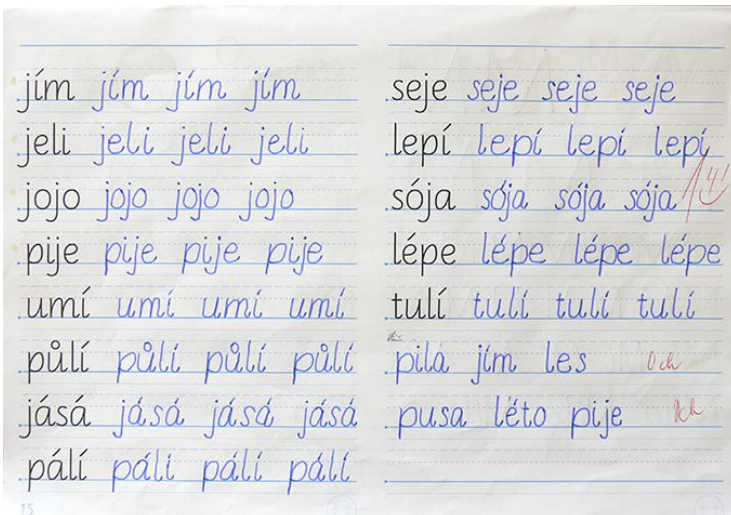 jím jím jím jím
jeli jeli jeli jeli
jojo jojo jojo jojo
pije pije pije pije
umí umí umí umí
půlí půlí půlí půlí
jásá jásá jásá jásá
pálí pálí pálí pálí
15
seje seje seje seje
lepí lepí lepí lepí
sója sója sója sója
lépe lépe lépe lépe
tulí tulí tulí tulí
pila jím les 0 ch
pusa léto pije 1ch